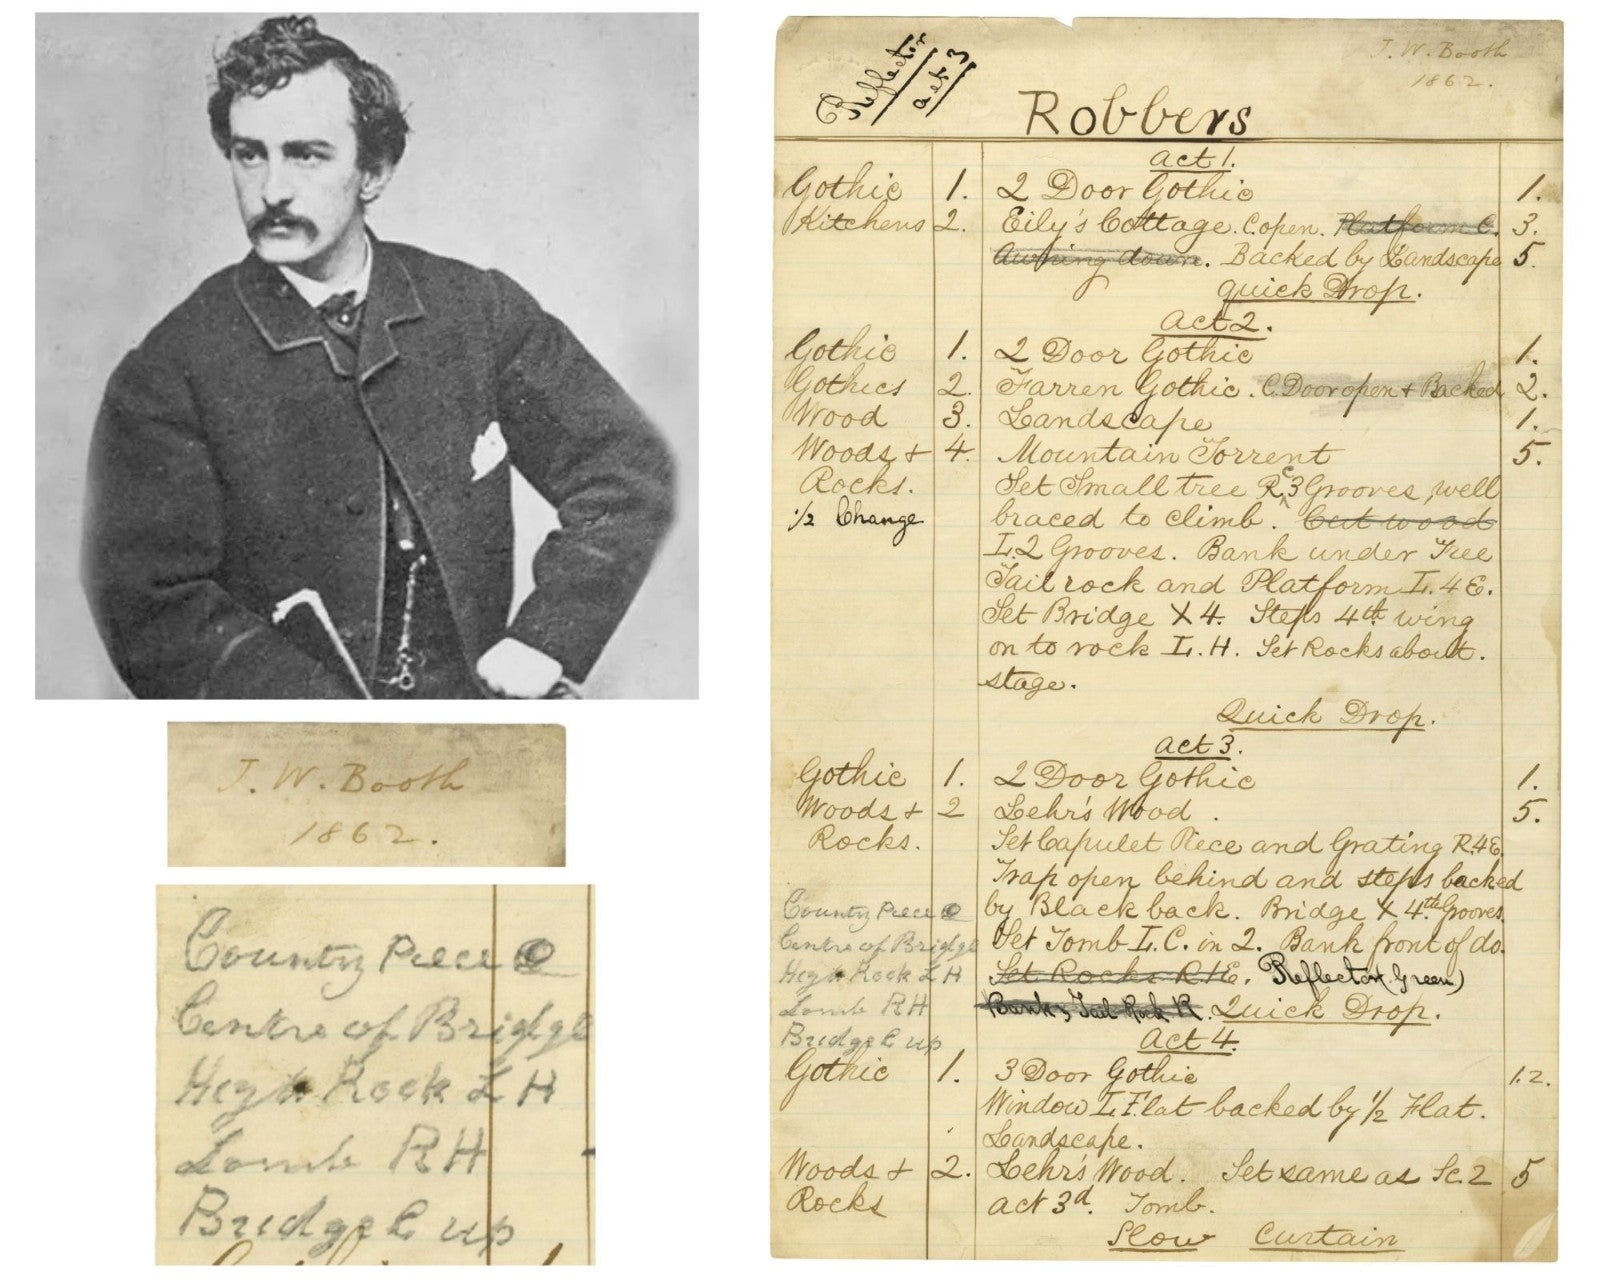 J. W. Booth
1862.
Country Piece C
Centre of Bridge
High Rock L H
Tomb RH
Bridge C up
Reflector
act 3
J. W. Booth
1862.
Robbers
Act 1.
Gothic 1. 2 Door Gothic 1.
Kitchens 2. Eily's Cottage. C. open. Platform C. 3.
Awning down. Backed by Landscape 5.
Quick Drop.
Act 2.
Gothic 1. 2 Door Gothic 1.
Gothics 2. Farren Gothic. C. Door open + Backed 2.
Wood 3. Landscape 1.
Woods + 4. Mountain Torrent 5.
Rocks. Set Small tree R. C 3 Grooves, well
1/2 Change braced to climb. Cut wood
L. 2 Grooves. Bank under Tree
Tail rock and Platform L. 4 E.
Set Bridge X 4. Steps 4th wing
on to rock L. H. Set Rocks about.
stage.
Quick Drop.
Act 3.
Gothic 1. 2 Door Gothic 1.
Woods + 2 Lehr's Wood. 5.
Rocks. Set Capulet Piece and Grating R. 4 E.
Trap open behind and steps backed
Country Piece C by Black back. Bridge X 4th Grooves.
Centre of Bridge Set Tomb L. C. in 2. Bank front of do.
High Rock L H Set Rocks R. 1 E. Reflector (Green)
Tomb RH Bank, Tail Rock R. Quick Drop.
Bridge C up Act 4.
Gothic 1. 3 Door Gothic 1.2.
Window L. Flat backed by 1/2 Flat.
Landscape.
Woods + 2. Lehr's Wood. Set same as Sc. 2 5
Rocks act 3d. Tomb.
Slow Curtain